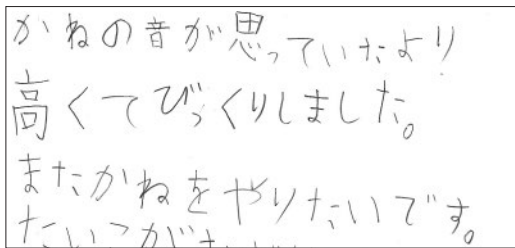 かねの音が思っていたより
高くてびっくりしました。
またかねをやりたいです。
たいこが